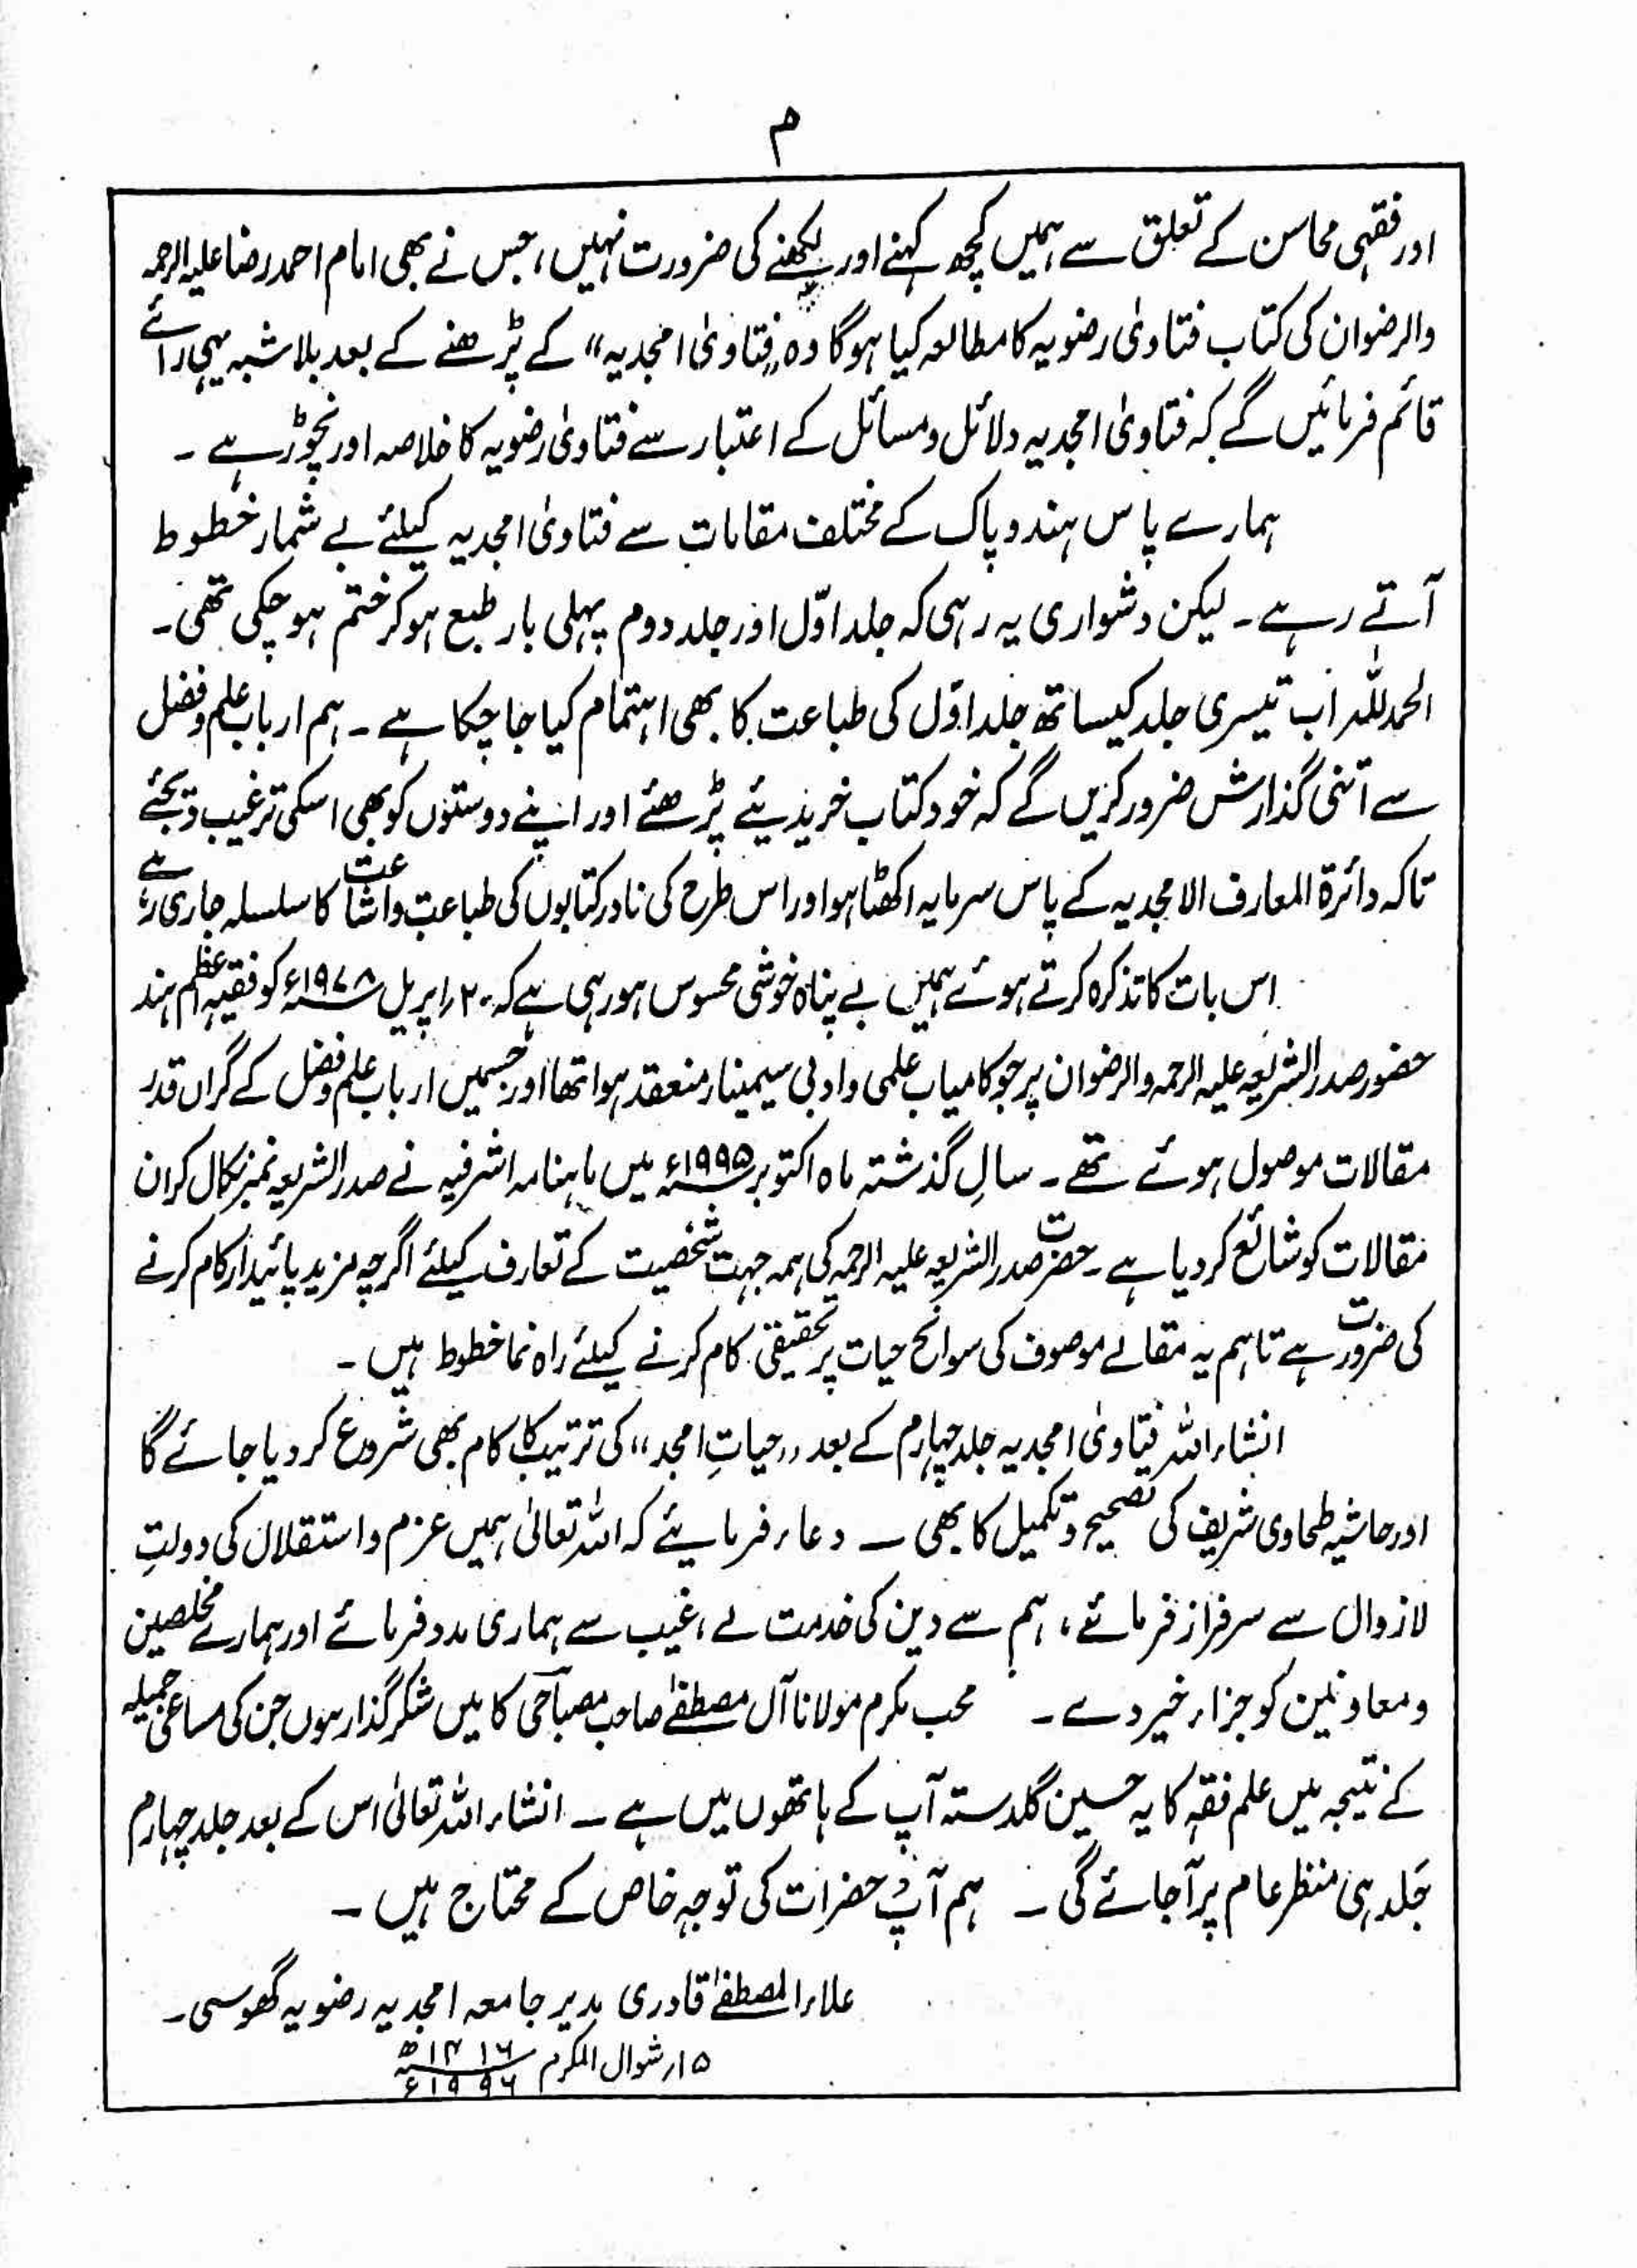 م
اور فقہی محاسن کے تعلق سے ہمیں کچھ کہنے اور لکھنے کی ضرورت نہیں، جس نے بھی امام احمد رضا علیہ الرحمہ
والرضوان کی کتاب فتاویٰ رضویہ کا مطالعہ کیا ہوگا وہ ,,فتاویٰ امجدیہ،، کے پڑھنے کے بعد بلا شبہ یہی رائے
قائم فرمائیں گے کہ فتاویٰ امجدیہ دلائل و مسائل کے اعتبار سے فتاویٰ رضویہ کا خلاصہ اور نچوڑ ہے ۔
ہمارے پاس ہند و پاک کے مختلف مقامات سے فتاویٰ امجدیہ کیلئے بے شمار خطوط
آتے رہے ۔ لیکن دشواری یہ رہی کہ جلد اوّل اور جلد دوم پہلی بار طبع ہو کر ختم ہو چکی تھی ۔
الحمد للہ اب تیسری جلد کیساتھ جلد اوّل کی طباعت کا بھی اہتمام کیا جا چکا ہے ۔ ہم ارباب علم و فضل
سے اتنی گذارش ضرور کریں گے کہ خود کتاب خریدیئے پڑھئے اور اپنے دوستوں کو بھی اسکی ترغیب دیجئے
تاکہ دائرۃ المعارف الامجدیہ کے پاس سرمایہ اکھٹا ہو اور اس طرح کی نادر کتابوں کی طباعت و اشاعت کا سلسلہ جاری رہے
اس بات کا تذکرہ کرتے ہوئے ہمیں بے پناہ خوشی محسوس ہو رہی ہے کہ ۲۰ اپریل ۱۹۷۸ء کو فقیہ اعظم ہند
حضور صدر الشریعہ علیہ الرحمہ والرضوان پر جو کامیاب علمی و ادبی سیمینار منعقد ہوا تھا اور جسمیں ارباب علم و فضل کے گراں قدر
مقالات موصول ہوئے تھے ۔ سالِ گذشتہ ماہ اکتوبر ۱۹۹۵ء میں ماہنامہ اشرفیہ نے صدر الشریعہ نمبر نکال کر ان
مقالات کو شائع کر دیا ہے ۔ حضرت صدر الشریعہ علیہ الرحمہ کی ہمہ جہت شخصیت کے تعارف کیلئے اگرچہ مزید پائیدار کام کرنے
کی ضرورت ہے تاہم یہ مقالے موصوف کی سوانح حیات پر تحقیقی کام کرنے کیلئے راہ نما خطوط ہیں ۔
انشاء اللہ فتاویٰ امجدیہ جلد چہارم کے بعد ,,حیاتِ امجد،، کی ترتیب کا کام بھی شروع کر دیا جائے گا
اور حاشیہ طحاوی شریف کی تصحیح و تکمیل کا بھی ۔ دعاء فرمایئے کہ اللہ تعالیٰ ہمیں عزم و استقلال کی دولتِ
لازوال سے سرفراز فرمائے، ہم سے دین کی خدمت لے، غیب سے ہماری مدد فرمائے اور ہمارے مخلصین
و معاونین کو جزاء خیر دے ۔ محب مکرم مولانا آل مصطفےٰ صاحب مصباحی کا میں شکر گذار ہوں جن کی مساعی جمیلہ
کے نتیجہ میں علم فقہ کا یہ حسین گلدستہ آپ کے ہاتھوں میں ہے ۔ انشاء اللہ تعالیٰ اس کے بعد جلد چہارم
جلد ہی منظر عام پر آجائے گی ۔ ہم آپ حضرات کی توجہ خاص کے محتاج ہیں ۔
علاء المصطفےٰ قادری مدیر جامعہ امجدیہ رضویہ گھوسی ۔
۱۵ر شوال المکرم ۱۴۱۶ھ
۱۹۹۶ء